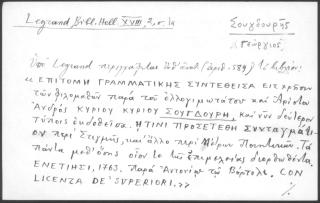 Legrand, Bibl. Hell. XVIII, 2, σ. 1α
Σουγδουρῆς
Γεώργιος.
Ὑπὸ Legrand περιγράφεται ὑπ' ἀριθ. 589) τὸ βιβλίον:
« ΕΠΙΤΟΜΗ ΓΡΑΜΜΑΤΙΚΗΣ ΣΥΝΤΕΘΕΙΣΑ ΕΙΣ ΧΡΗΣΙΝ
τῶν φιλομαθῶν παρὰ τοῦ ἐλλογιμωτάτου καὶ Ἀρίστου
Ἀνδρὸς ΚΥΡΙΟΥ ΚΥΡΙΟΥ ΣΟΥΓΔΟΥΡΗ, καὶ νῦν δεύτερον
Τύποις ἐκδοθεῖσα. ΗΤΙΝΙ ΠΡΟΣΕΤΕΘΗ ΣΥΝΤΑΓΜΑΤΙ
ΟΝ περὶ Στιγμῆς, καὶ ἄλλο περὶ Μέτρων Ποιητικῶν. Τὰ
πάντα μεθ' ὅσης οἷόν τε τῆς ἐπιμελείας διορθωθέντα.
ΕΝΕΤΙΗΣΙ, 1763. παρὰ Ἀντωνίῳ τῷ Βόρτολι. CON
LICENZA DE' SUPERIORI. »